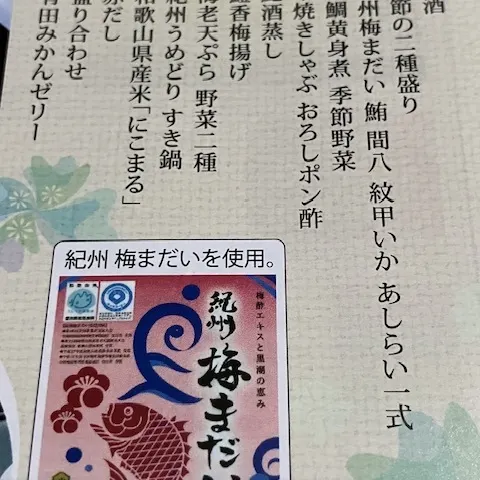 酒
節の二種盛り
州梅まだい 鮪 間八 紋甲いか あしらい一式
鯛黄身煮 季節野菜
焼きしゃぶ おろしポン酢
酒蒸し
香梅揚げ
海老天ぷら 野菜二種
紀州うめどり すき鍋
和歌山県産米「にこまる」
赤だし
盛り合わせ
有田みかんゼリー
紀州 梅まだいを使用。
梅酢エキスと黒潮の恵み
紀州
梅まだい